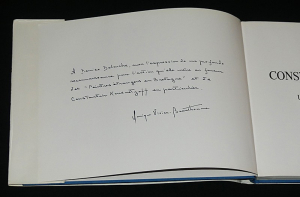 À Denise Delouche, avec l'expression de ma profonde
reconnaissance pour l'action qu'elle mène en faveur
des "Peintres étrangers en Bretagne" et de
Constantin Kousnetzoff en particulier.
CONST